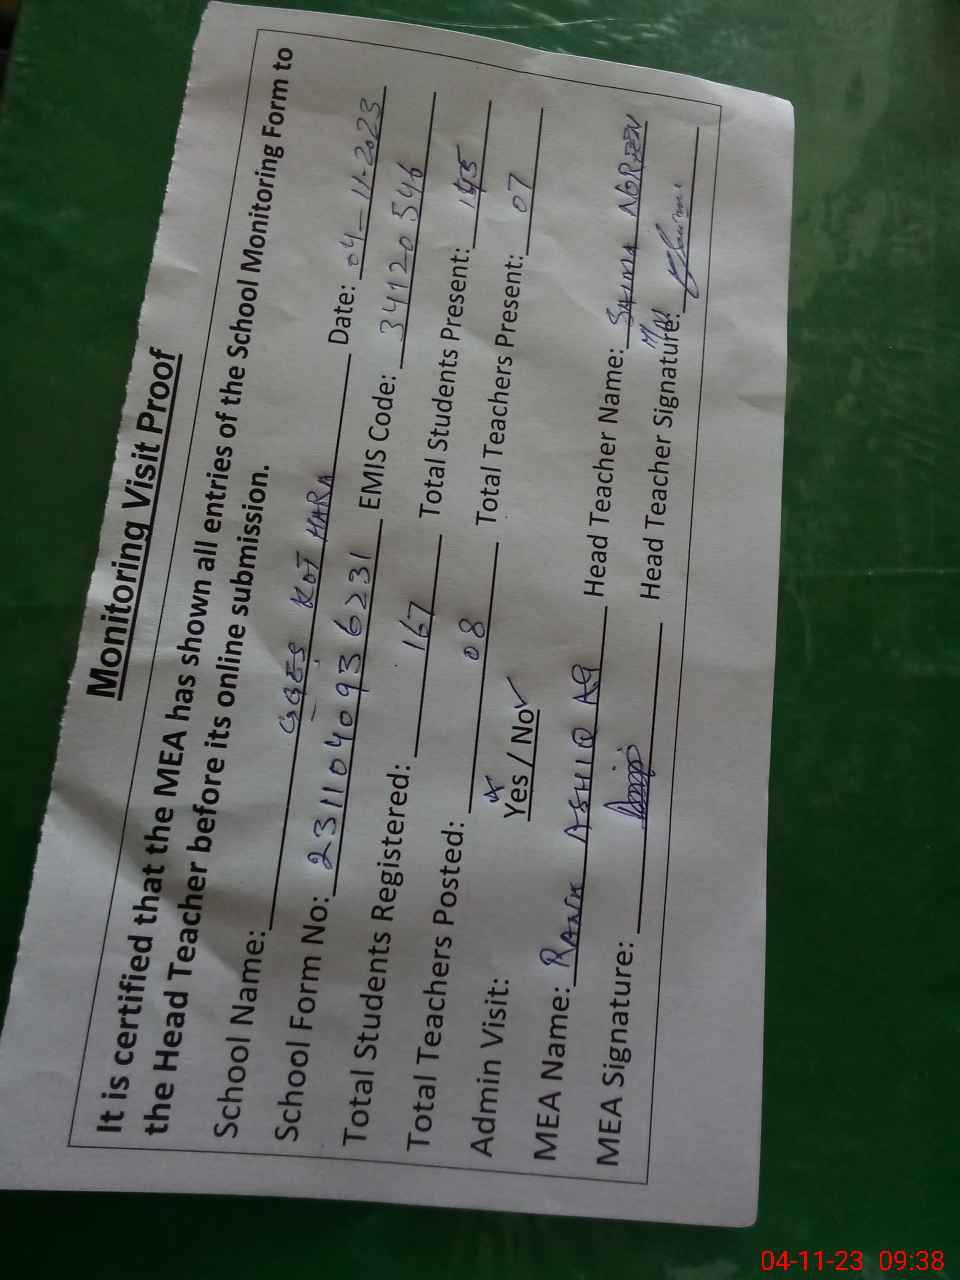 Monitoring Visit Proof
It is certified that the MEA has shown all entries of the School Monitoring Form to
the Head Teacher before its online submission.
School Name: GGES KOT HARA Date: 04-11-2023
School Form No: 2311040936231 EMIS Code: 34120546
Total Students Registered: 167 Total Students Present: 145
Total Teachers Posted: 08 Total Teachers Present: 07
Admin Visit: Yes / No ✓
MEA Name: ASHIQ Head Teacher Name: SAIMA
MEA Signature: Head Teacher Signature:
04-11-23 09:38